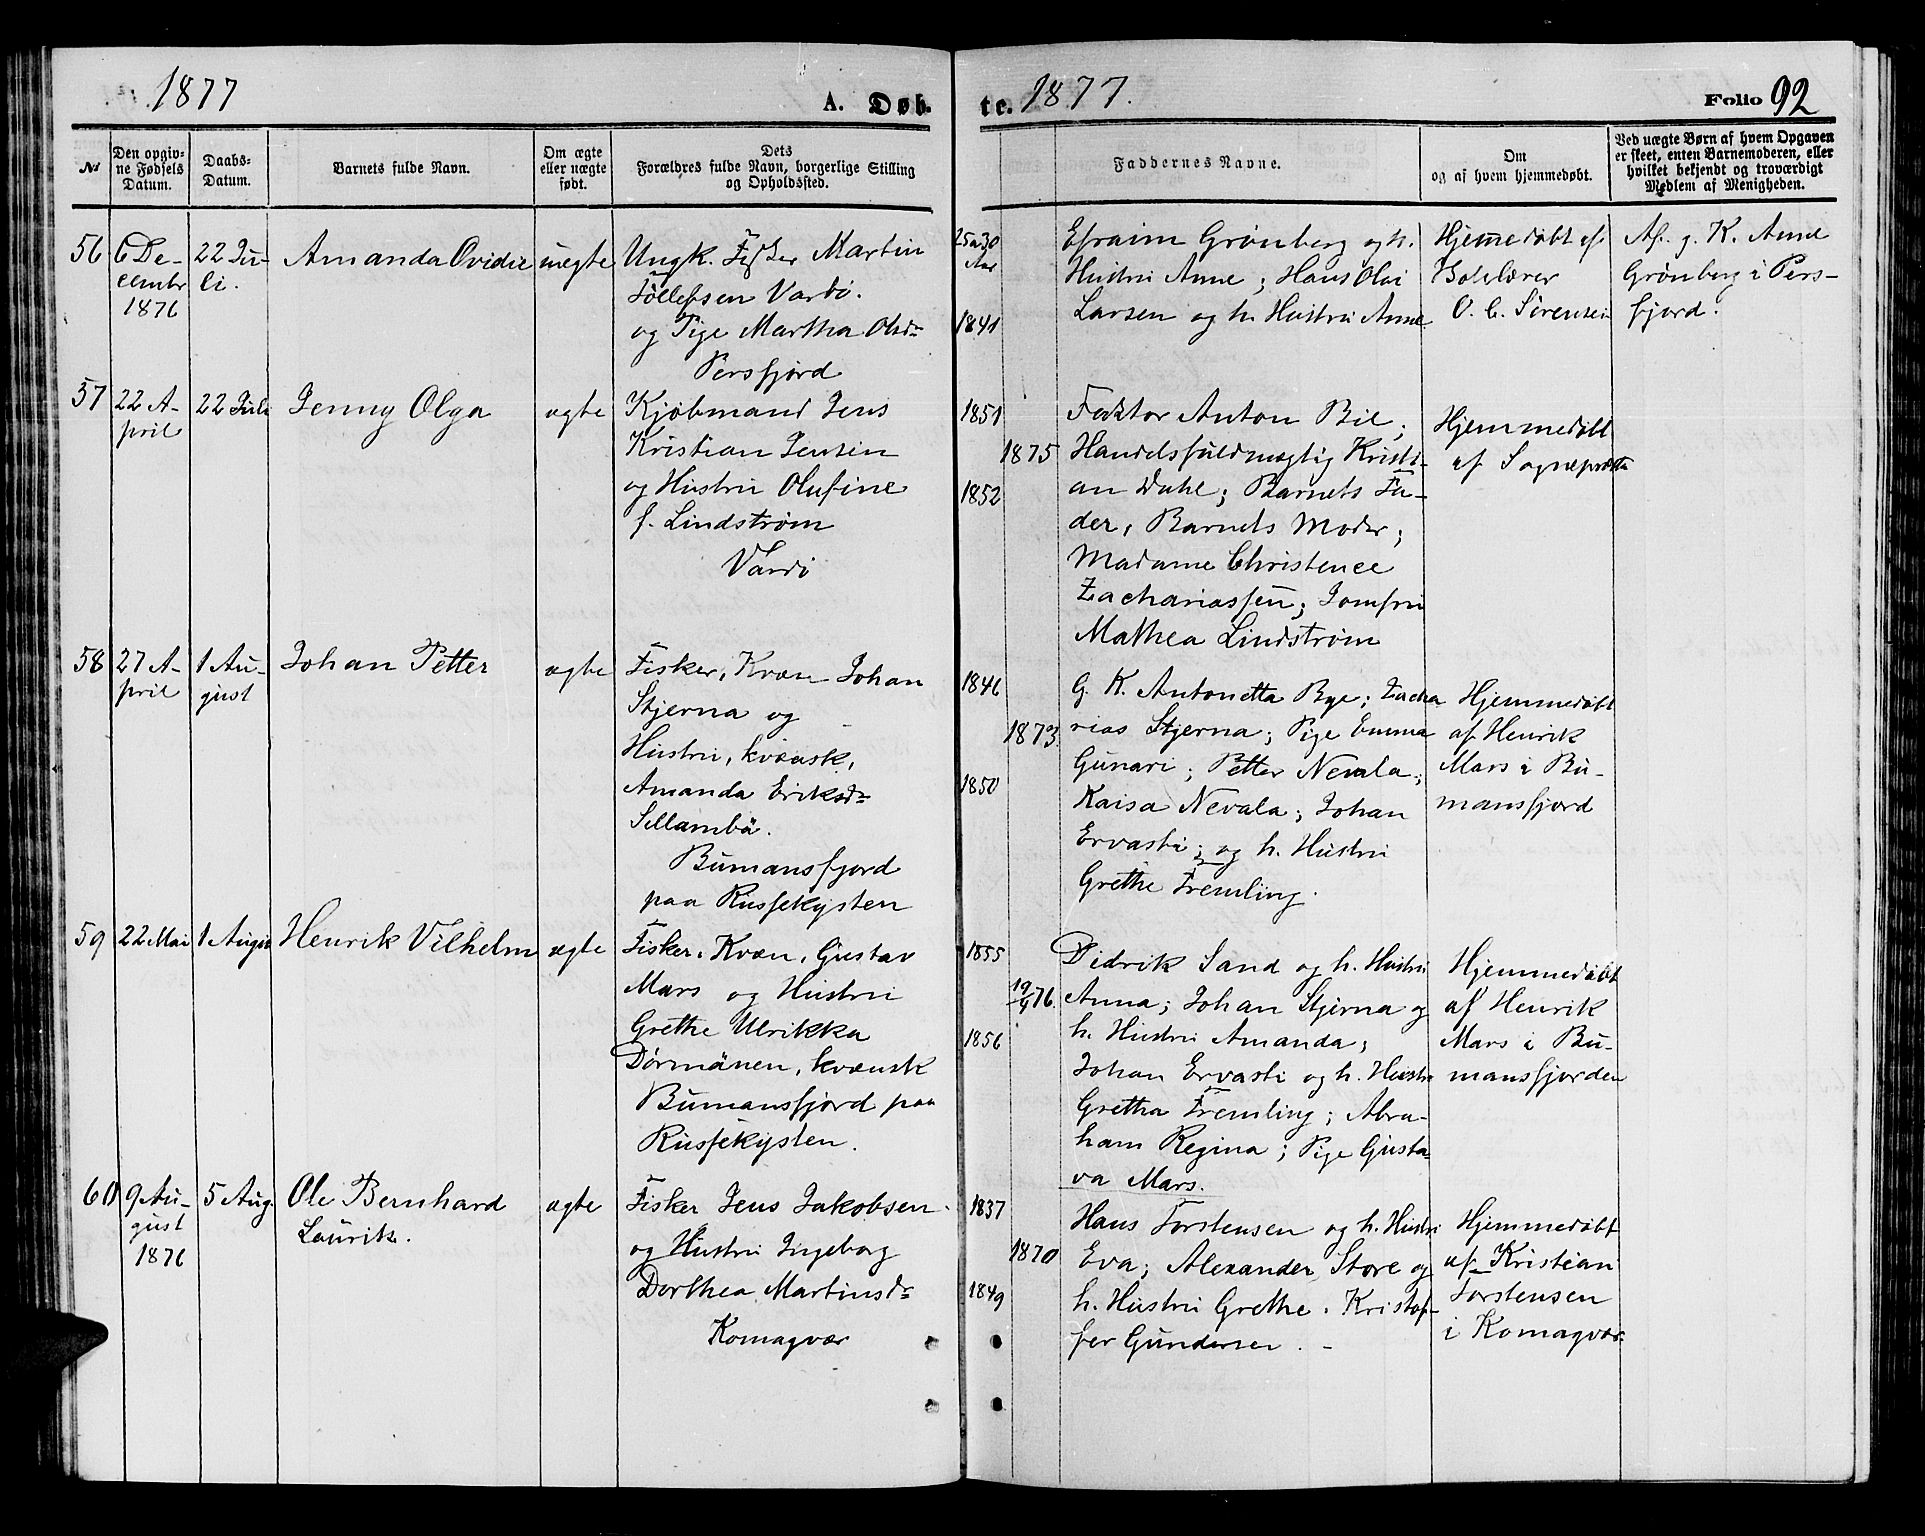 1877
A. Døb-
te. 1877.
Folio 92
No
Den opgiv-
ne Fødsels
Datum.
Daabs-
Datum.
Barnets fulde Navn.
Om ægte
eller uægte
født.
Dets
Forældres fulde Navn, borgerlige Stilling
og Opholdssted.
Faddernes Navne.
Om
og af hvem hjemmedøbt.
Ved uægte Børn af hvem Opgaven
er skeet, enten Barnemoderen, eller
hvilket bekjendt og troværdigt
Medlem af Menigheden.
56
6 De-
cembr
1876
22 Ju-
li.
Amanda Ovidie
uægte
Ungk. Fisker Martin
Tollefsen Vardö.
og Pige Martha Olsdr
Persfjord
25 a 30
Aar
1841
Efraim Grönberg og h.
Hustru Anne; Hans Olai
Larsen og h. Hustru Anne
Hjemmedöbt af
O. C. Sörensen
Af g. K. Anne
Grönberg i Pers-
fjord.
57
22 A-
pril
22 Juli
Jenny Olga
ægte
Kjöbmand Jens
Kristian Jensen
og Hustru Olufine
f. Lindström
Vardö
1851
1875
1852
Faktor Anton Bie;
Handelsfuldmægtig Kristi-
an Dahl; Barnets Fa-
der, Barnets Moder;
Madame Christence
Zachariassen; Jomfru
Mathea Lindström
Hjemmedöbt
af Sognepræsten
58
27 A-
pril
1 Au-
gust
Johan Petter
ægte
Fisker, Kvæn Johan
Stjerna og
Hustru, kvænsk,
Amanda Eriksdr
Sillambä.
Bumansfjord
paa Russekysten
1846
1873
1850
G. K. Antonetta Bye; Zacha
rias Stjerna; Pige Emma
Gunari; Petter Nevala;
Kaisa Nevala; Johan
Ervasti; og h. Hustru
Grethe Fremling.
Hjemmedöbt
af Henrik
Mars i Bu-
mansfjord
59
22 Mai
1 August
Henrik Vilhelm
ægte
Fisker, Kvæn, Gustav
Mars og Hustru
Grethe Ulrikka
Dörmänen, kvænsk
Bumansfjord paa
Russekysten.
1855
19/9 76.
1856
Didrik Sand og h. Hustru
Anna; Johan Stjerna og
h. Hustru Amanda;
Johan Ervasti og h. Hustru
Gretha Fremling; Abra-
ham Regina; Pige Gusta-
va Mars.
Hjemmedöbt
af Henrik
Mars i Bu-
mansfjorden
60
9 Au-
gust
1876
5 Aug.
Ole Bernhard
Lauritz.
ægte
Fisker Jens Jakobsen
og Hustru Ingeborg
Dorthea Martinsdr
Komagvær
1837
1870
1849
Hans Torstensen og h. Hustru
Eva; Alexander Store og
h. Hustru Grethe. Kristof-
fer Gundersen. -
Hjemmedöbt
af Kristian
Torstensen
i Komagvær.